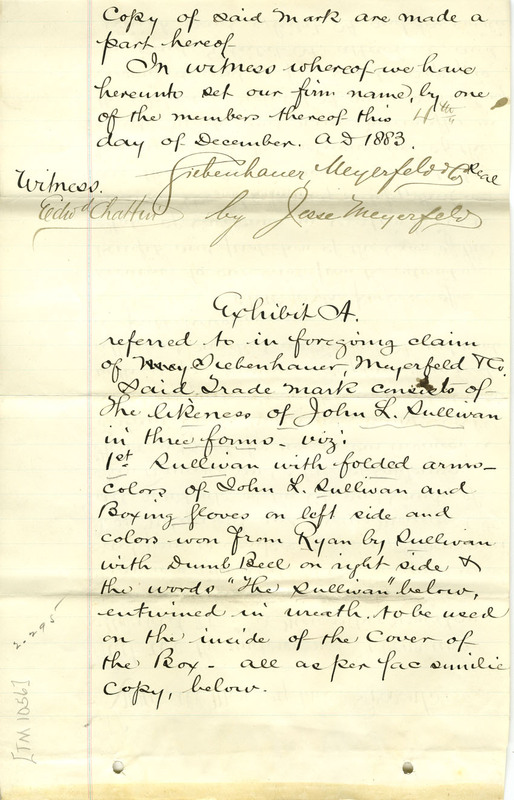 Copy of said mark are made a
part hereof
In witness whereof we have
hereunto set our firm name, by one
of the members thereof this 4th
day of December. AD 1883.
Siebenhauer Meyerfeld & Co Seal
Witness.
Edwd Chattin by Jesse Meyerfeld
Exhibit A.
referred to in foregoing claim
of Siebenhauer, Meyerfeld & Co.
Said Trade mark consists of
The likeness of John L. Sullivan
in three forms - viz:
1st Sullivan with folded arms -
colors of John L. Sullivan and
Boxing Gloves on left side and
colors won from Ryan by Sullivan
with Dumb Bell on right side &
the words "The Sullivan" below,
entwined in wreath, to be used
on the inside of the Cover of
the Box - all as per fac similie
Copy, below.
2.295-
[TM 1056]